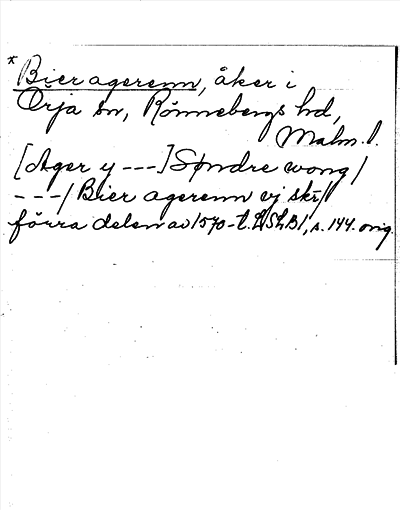 * Bier agerenn, åker i
Örja sn, Rönnebergs hd,
Malm. l.
[Ager y ---] Søndre wong/
---/ Bier agerenn vj skr/
förra delen av 1570-t. LSLB1, s. 144. orig.